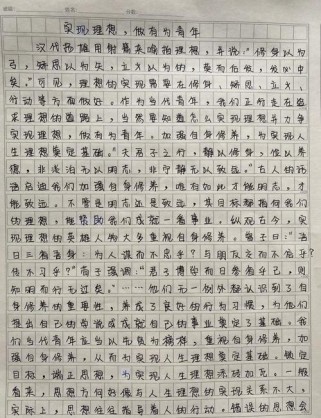 实现理想，做有为青年
汉代扬雄用射箭来喻指理想，并说：“修身以为
弓，矫思以为矢，立义以为的，奠而后发，发必中
矣。”可见，理想的实现需要在修身、矫思、立义、
行动等方面做好。作为当代青年，我们正行走在追
求理想的道路上，当然要知道怎么实现理想并力争
实现理想，做有为青年。加强自身修养，为实现人
生理想奠定基础。“夫君子之行，静以修身，俭以养
德，非淡泊无以明志，非宁静无以致远。”古人的话
语启迪我们加强自身修养，唯有如此才能明志，才
能致远。不管是明志还是致远，其目标都指向我们
的理想，继而我们成就一番事业。纵观古今，实
现理想的英雄人物大多重视自身修养。曾子曰：“吾
日三省吾身：为人谋而不忠乎？与朋友交而不信乎？
传不习乎？”荀子强调：“君子博学而日参省乎己，则
知明而行无过矣。”……他们无一例外都认识到了自
身修养的重要性，养成了良好的行为习惯，为他们
提出自己的学说或成就自己的事业奠定了基础。我
们当代青年应当以先贤为榜样，重视自身修养，加
强自身修养，从而为实现人生理想奠定基础。锁定
目标，端正思想，为实现人生理想添砖加瓦。一般
看来，思想方向好像与人生理想的实现关系不大，
实际上，思想往往指导着人的行动。错误的思想会